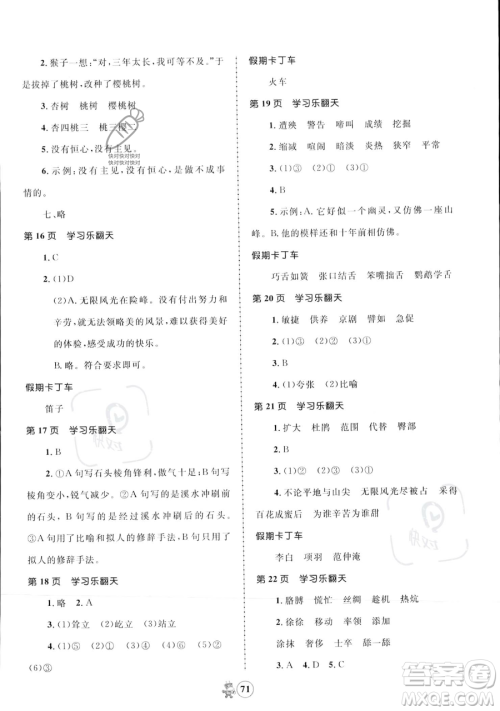 2. 猴子一想：“对，三年太长，我可等不及。”于
是拔掉了桃树，改种了樱桃树。
3. 杏树　桃树　樱桃树
4. 杏四桃三　桃三樱二
5. 没有恒心，没有主见。
6. 示例：没有恒心，没有主见的人是做不成事
情的。
七、略
第 16 页　学习乐翻天
1. C
2. (1)D
(2)A. 无限风光在险峰。通过自己的努力和
辛劳，就能领略美的风景，才能获得美好的体
验，感受成功的快乐。
B. 略。符合要求即可。
假期卡丁车
笛子
第 17 页　学习乐翻天
1. B
2. ①A 句写石头棱角锋利，锐气十足；B 句写
棱角变小，锐气减少。②A 句写的是溪水冲刷前
的石头，B 句写的是溪水冲刷后的石头；都用了
拟人的修辞手法。
第 18 页　学习乐翻天
1. 略　2. A
3. (1)耸立　(2)屹立　(3)站立
4. (1)④　(2)②　(3)⑤　(4)①　(5)⑥
(6)③
假期卡丁车
火车
第 19 页　学习乐翻天
1. 遭殃　警告　呵斥　成绩　挖掘
2. 缩暄　阔暗　尝试　炎狭窄　平常
3. B　4. (1)①　(2)③　(3)②
5. 示例：A. 仿佛是一个幽灵，又仿佛是一座
山峰。B. 他的模样还和十年前仿佛。
假期卡丁车
巧舌如簧　张口结舌　笨嘴拙舌　鹦鹉学舌
第 20 页　学习乐翻天
1. 敏捷　供养　京剧　随即
2. ③　②　④　①
3. B　4. (1)夸张　(2)比喻
第 21 页　学习乐翻天
1. 扩大　杜鹃　苗圃　代替　臀部
2. B
3. A
4. 不论平地与山尖　无限风光尽被占　采得
百花成蜜后　为谁辛苦为谁甜
假期卡丁车
李白　项羽　范仲淹
第 22 页　学习乐翻天
1. 胳膊　慌忙　丝绸　走廊　热炕
2. 徐徐　移动　慢慢　渐渐
涂抹　束手　舌舔　舔舔
3. A　4. ②　①　④　③
71